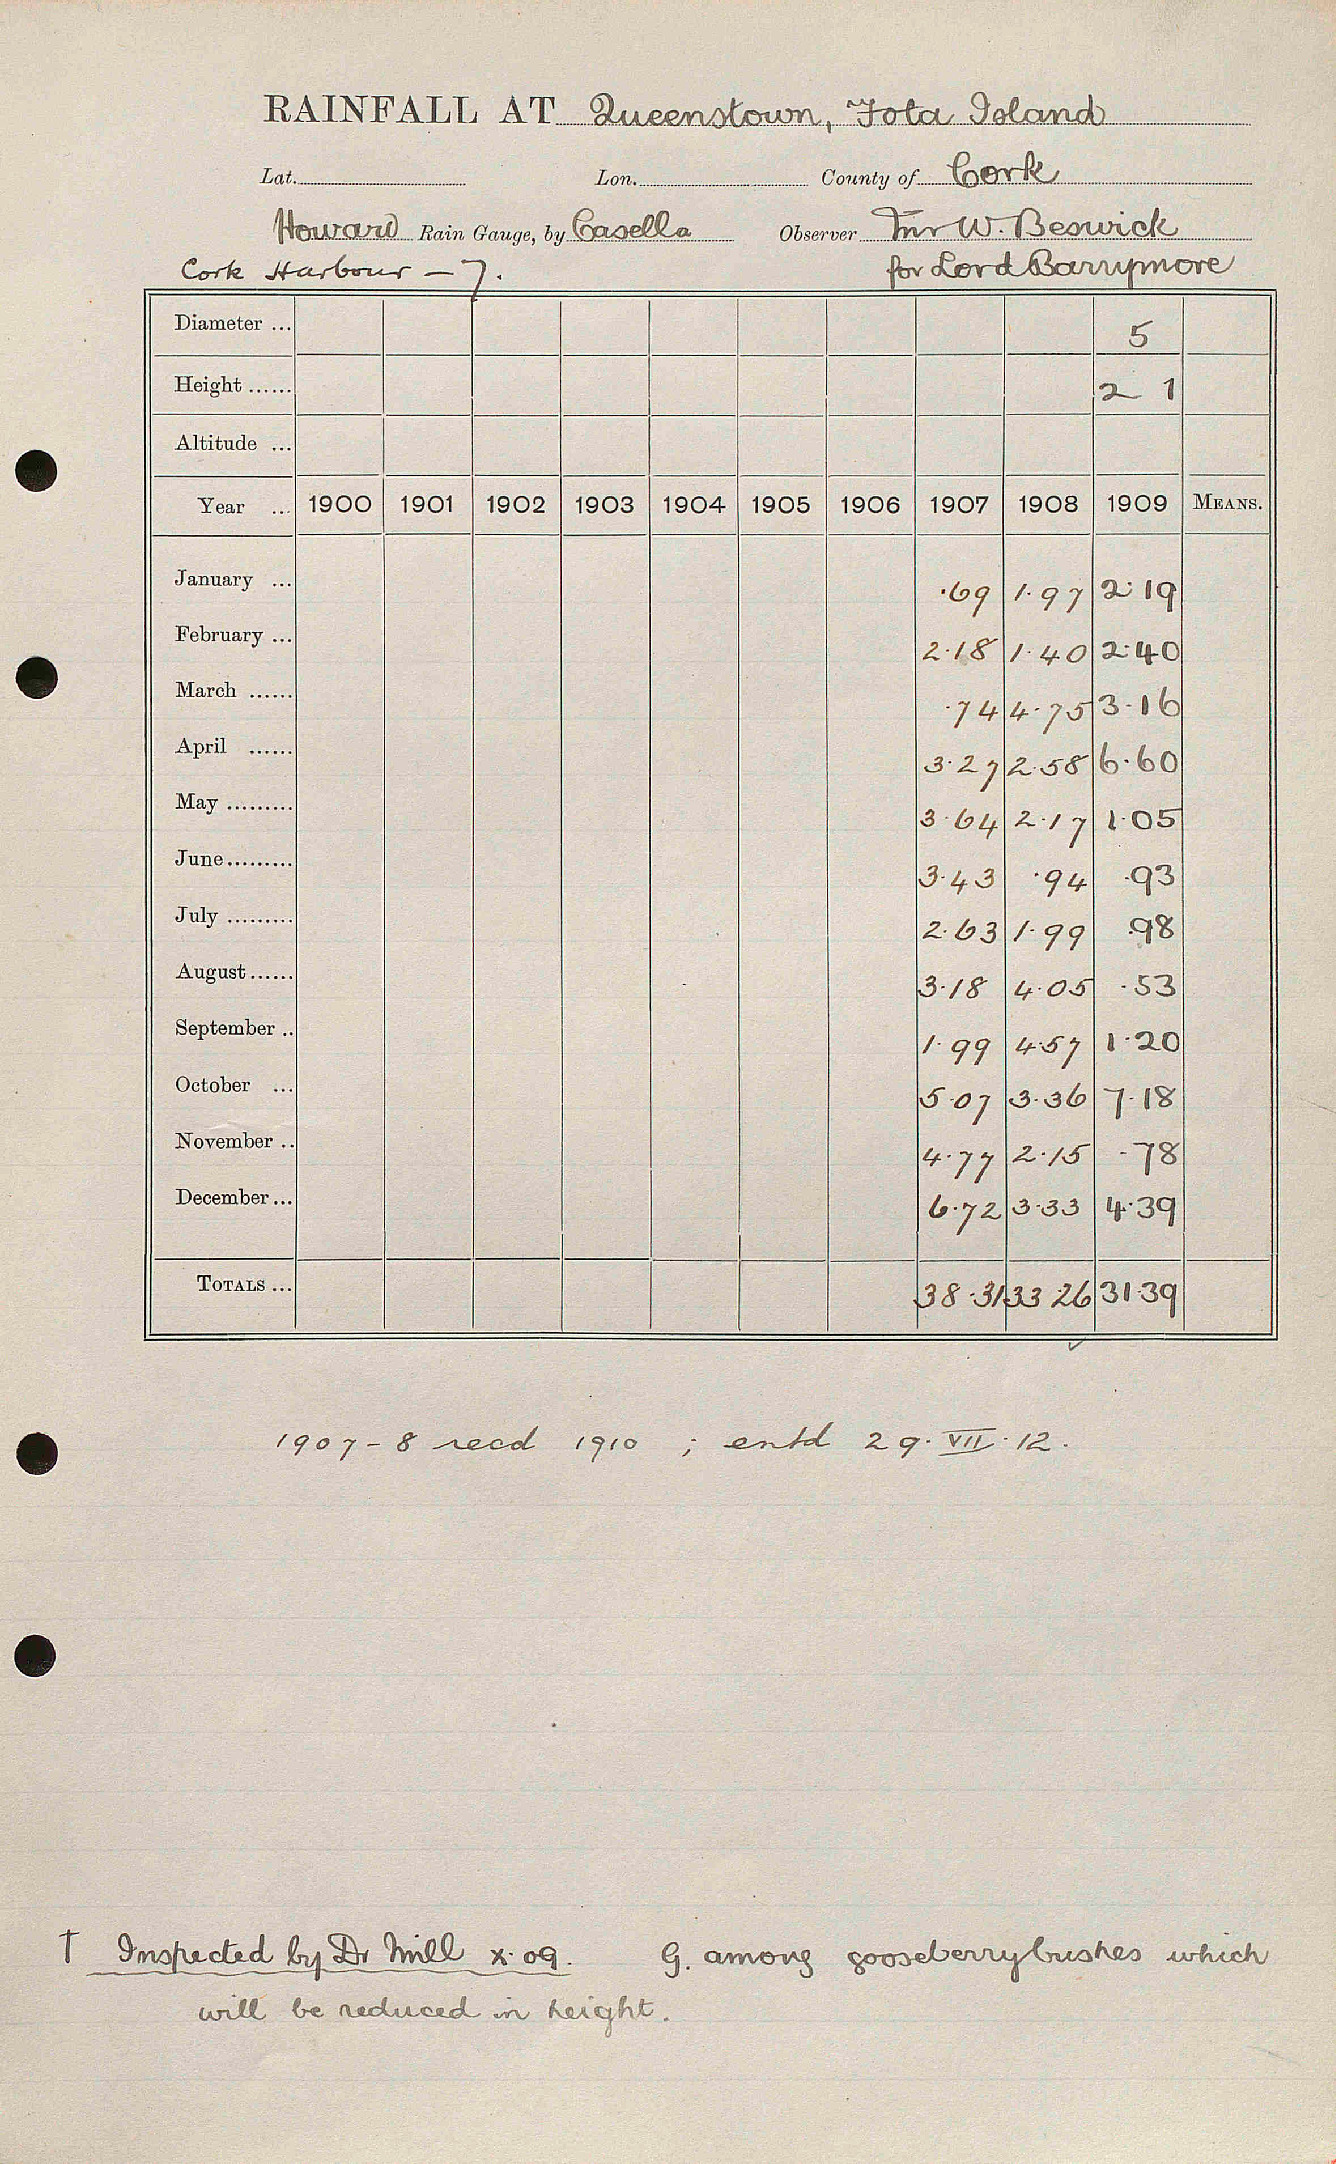 RAINFALL AT Queenstown, Fota Island
Lat. Lon. County of Cork
Howard Rain Gauge, by Casella Observer Mr W. Beswick
Cork Harbour – 7. for Lord Barrymore
Diameter ... 5
Height ...... 2 1
Altitude ...
Year ... 1900 1901 1902 1903 1904 1905 1906 1907 1908 1909 MEANS.
January ... .69 1.97 2.19
February ... 2.18 1.40 2.40
March ...... .74 4.75 3.16
April ...... 3.27 2.58 6.60
May ......... 3.64 2.17 1.05
June......... 3.43 .94 .93
July ......... 2.63 1.99 .98
August...... 3.18 4.05 .53
September .. 1.99 4.57 1.20
October ... 5.07 3.36 7.18
November .. 4.77 2.15 .78
December... 6.72 3.33 4.39
TOTALS ... 38.31 33 26 31.39
1907-8 recd 1910 ; entd 29.VII.12.
† Inspected by Dr Mill X.09. G. among gooseberry bushes which
will be reduced in height.